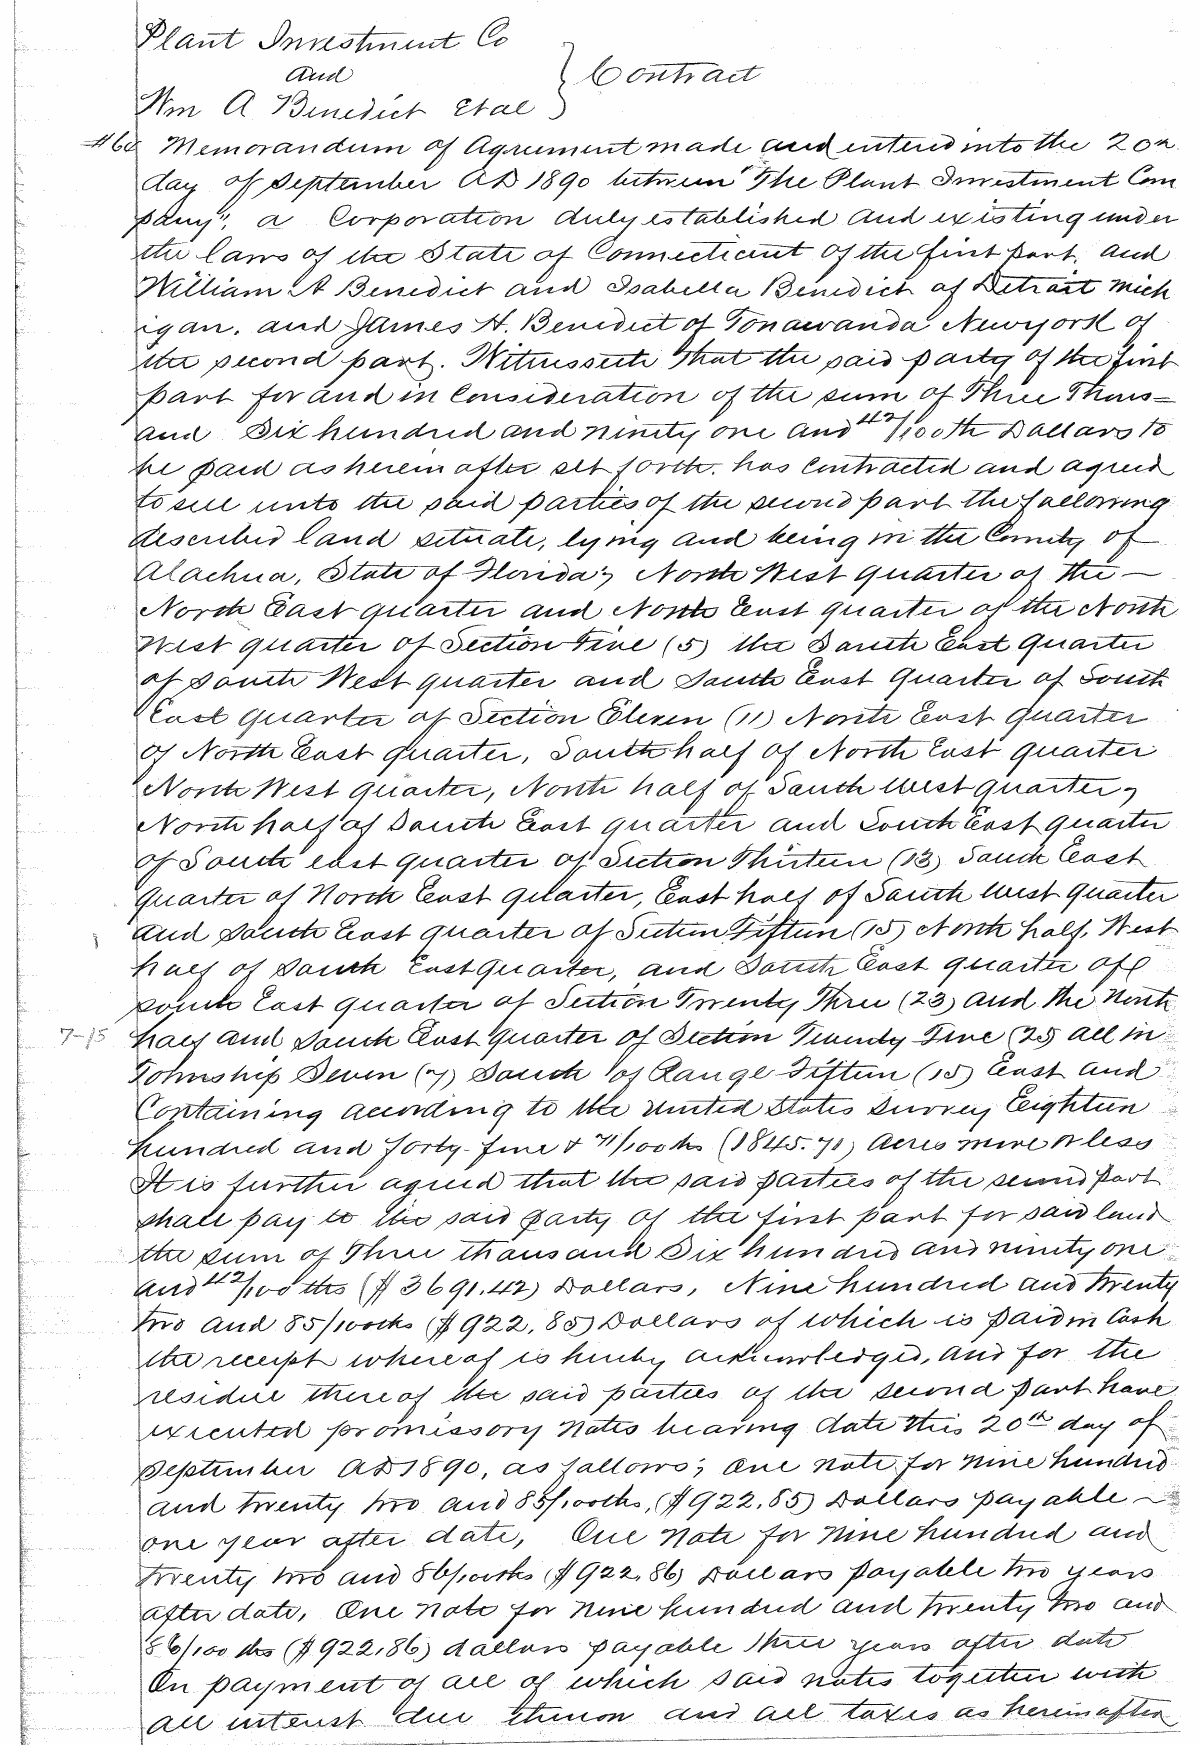 Plant Investment Co
and
Wm A Benedict Etal } Contract
#60 Memorandum of Agreement made and entered into the 20th
day of September AD 1890 between "The Plant Investment Com
pany", a Corporation duly established and existing under
the laws of the State of Connecticut of the first part, and
William A Benedict and Isabella Benedict of Detroit Mich
igan. and James H. Benedict of Tonawanda New york of
the second part. Witnesseth That the said party of the first
part for and in Consideration of the sum of Three Thous=
and Six hundred and ninety one and 42/100th Dollars to
be paid as herein after set forth. has Contracted and agreed
to sell unto the said parties of the second part the following
described land situate, lying and being in the County of
Alachua, State of Florida; North West quarter of the —
North East quarter and North East quarter of the North
West quarter of Section Five (5) the South East Quarter
of South West quarter and South East Quarter of South
East Quarter of Section Eleven (11) North East Quarter
of North East quarter, South half of North East quarter
North West quarter, North half of South west quarter,
North half of South East quarter and South East quarter
of South east quarter of Section Thirteen (13) South East
quarter of North East quarter, East half of South west quarter
and South East quarter of Section Fifteen (15) North half, West
half of South East Quarter, and South East quarter of
South East quarter of Section Twenty Three (23) and the North
7-15 half and South East Quarter of Section Twenty Five (25) all in
Township Seven (7) South of Range Fifteen (15) East and
Containing according to the United States Survey Eighteen
hundred and forty-five & 71/100ths (1845.71) Acres more or less
It is further agreed that the said parties of the second part
shall pay to the said party of the first part for said land
the sum of Three thousand Six hundred and ninety one
and 42/100ths ($3691.42) Dollars, Nine hundred and twenty
two and 85/100ths ($922.85) Dollars of which is paid in Cash
the receipt whereof is hereby acknowledged, and for the
residue thereof the said parties of the second part have
executed promissory notes bearing date this 20th day of
September AD 1890, as follows; One note for Nine hundred
and twenty two and 85/100ths, ($922.85) Dollars payable —
one year after date, One Note for Nine hundred and
twenty two and 86/100ths ($922.86) Dollars payable two years
after date, One Note for Nine hundred and twenty two and
86/100ths ($922.86) dollars payable three years after date
On payment of all of which said notes together with
all interest due thereon and all taxes as hereinafter